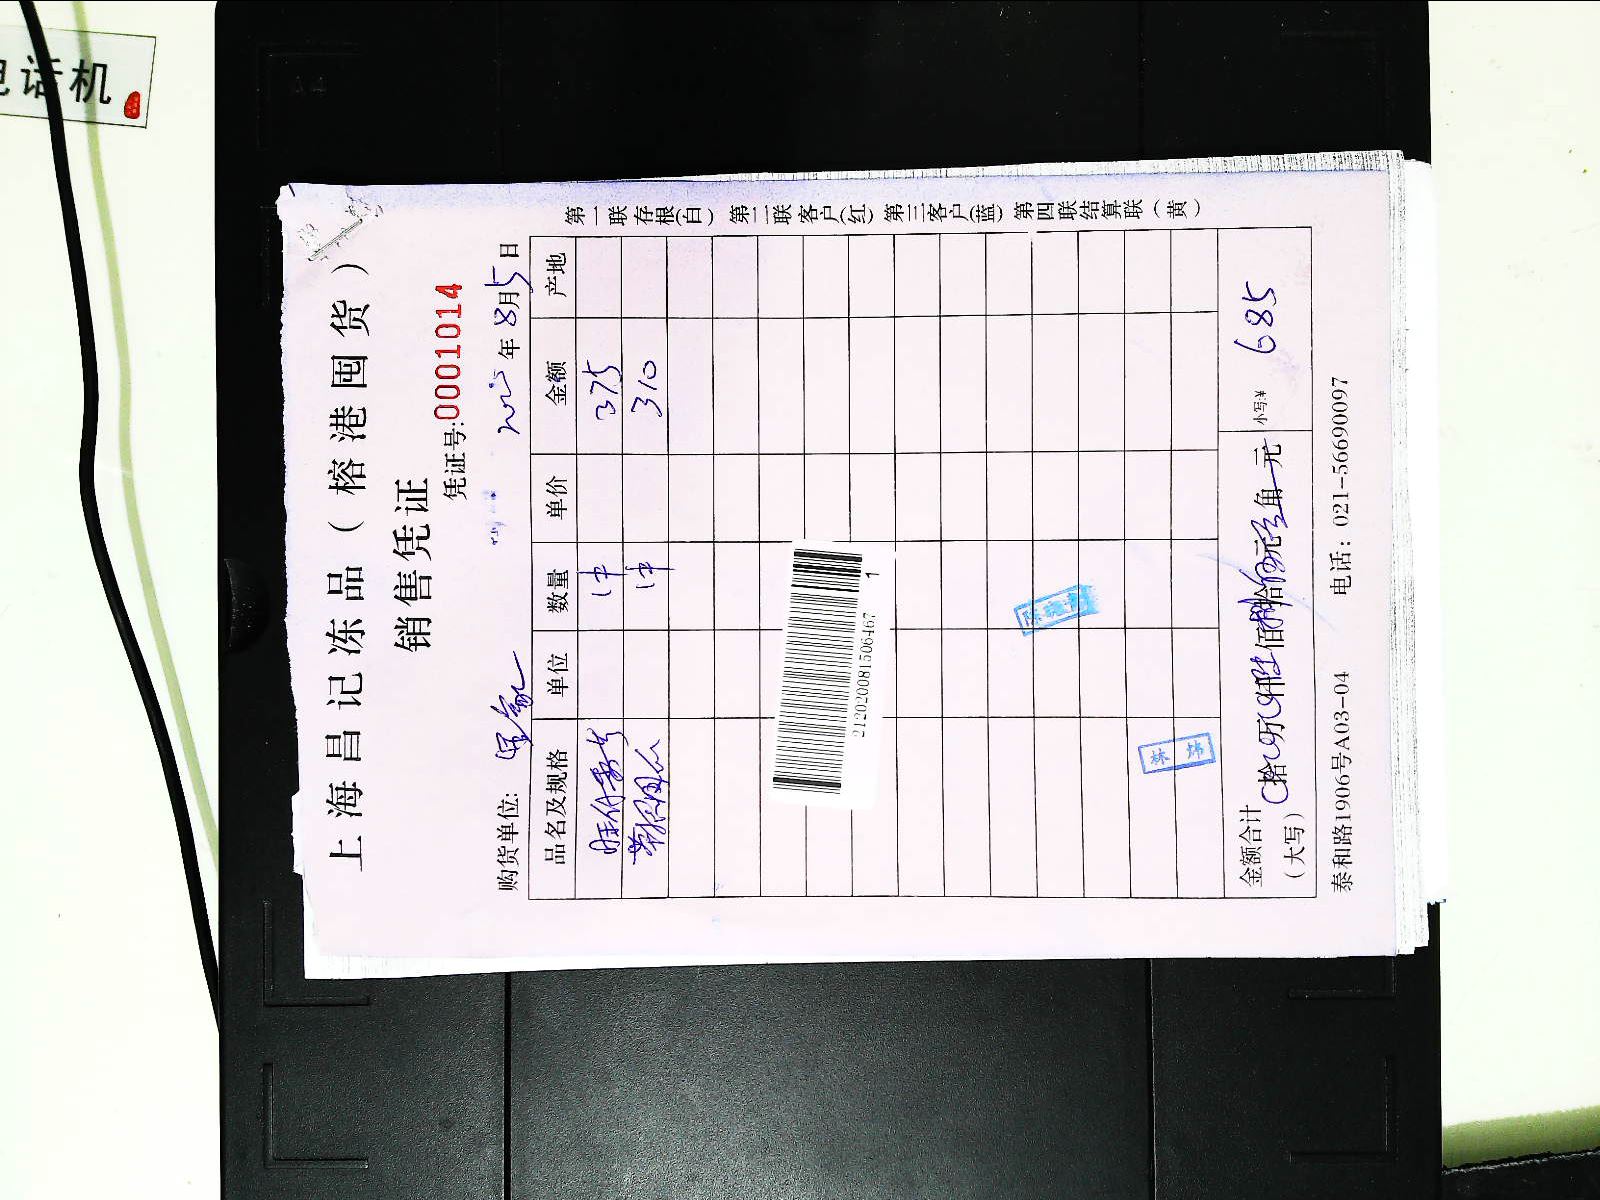 电话机
上海昌记冻品（榕港囤货）
销售凭证
凭证号:0001014
购货单位: 年8月5日
品名及规格 单位 数量 单价 金额 产地
1件 375
1件 310
2120200815064671
陈
林 炜
金额合计（大写） 拾 万 仟 佰 拾 元 角 元 小写:¥ 685
泰和路1906号A03-04 电话: 021-56690097
第一联存根(白) 第二联客户(红) 第三客户(蓝) 第四联结算联（黄）